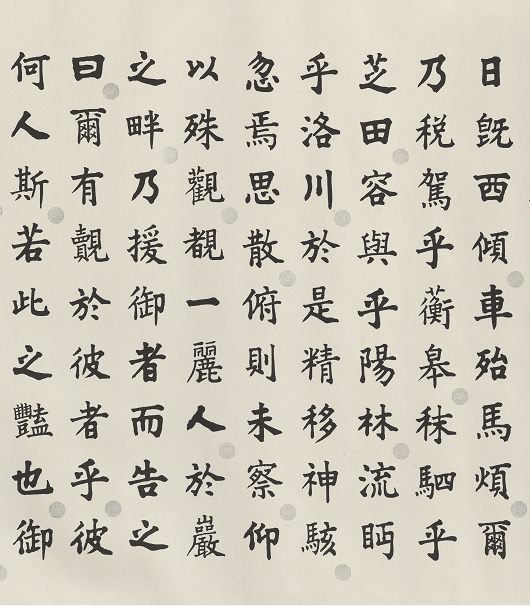 日旣西傾車殆馬煩爾
乃稅駕乎蘅皋秣駟乎
芝田容與乎陽林流眄
乎洛川於是精移神駭
忽焉思散俯則未察仰
以殊觀覩一麗人於巖
之畔乃援御者而告之
曰爾有覿於彼者乎彼
何人斯若此之豔也御